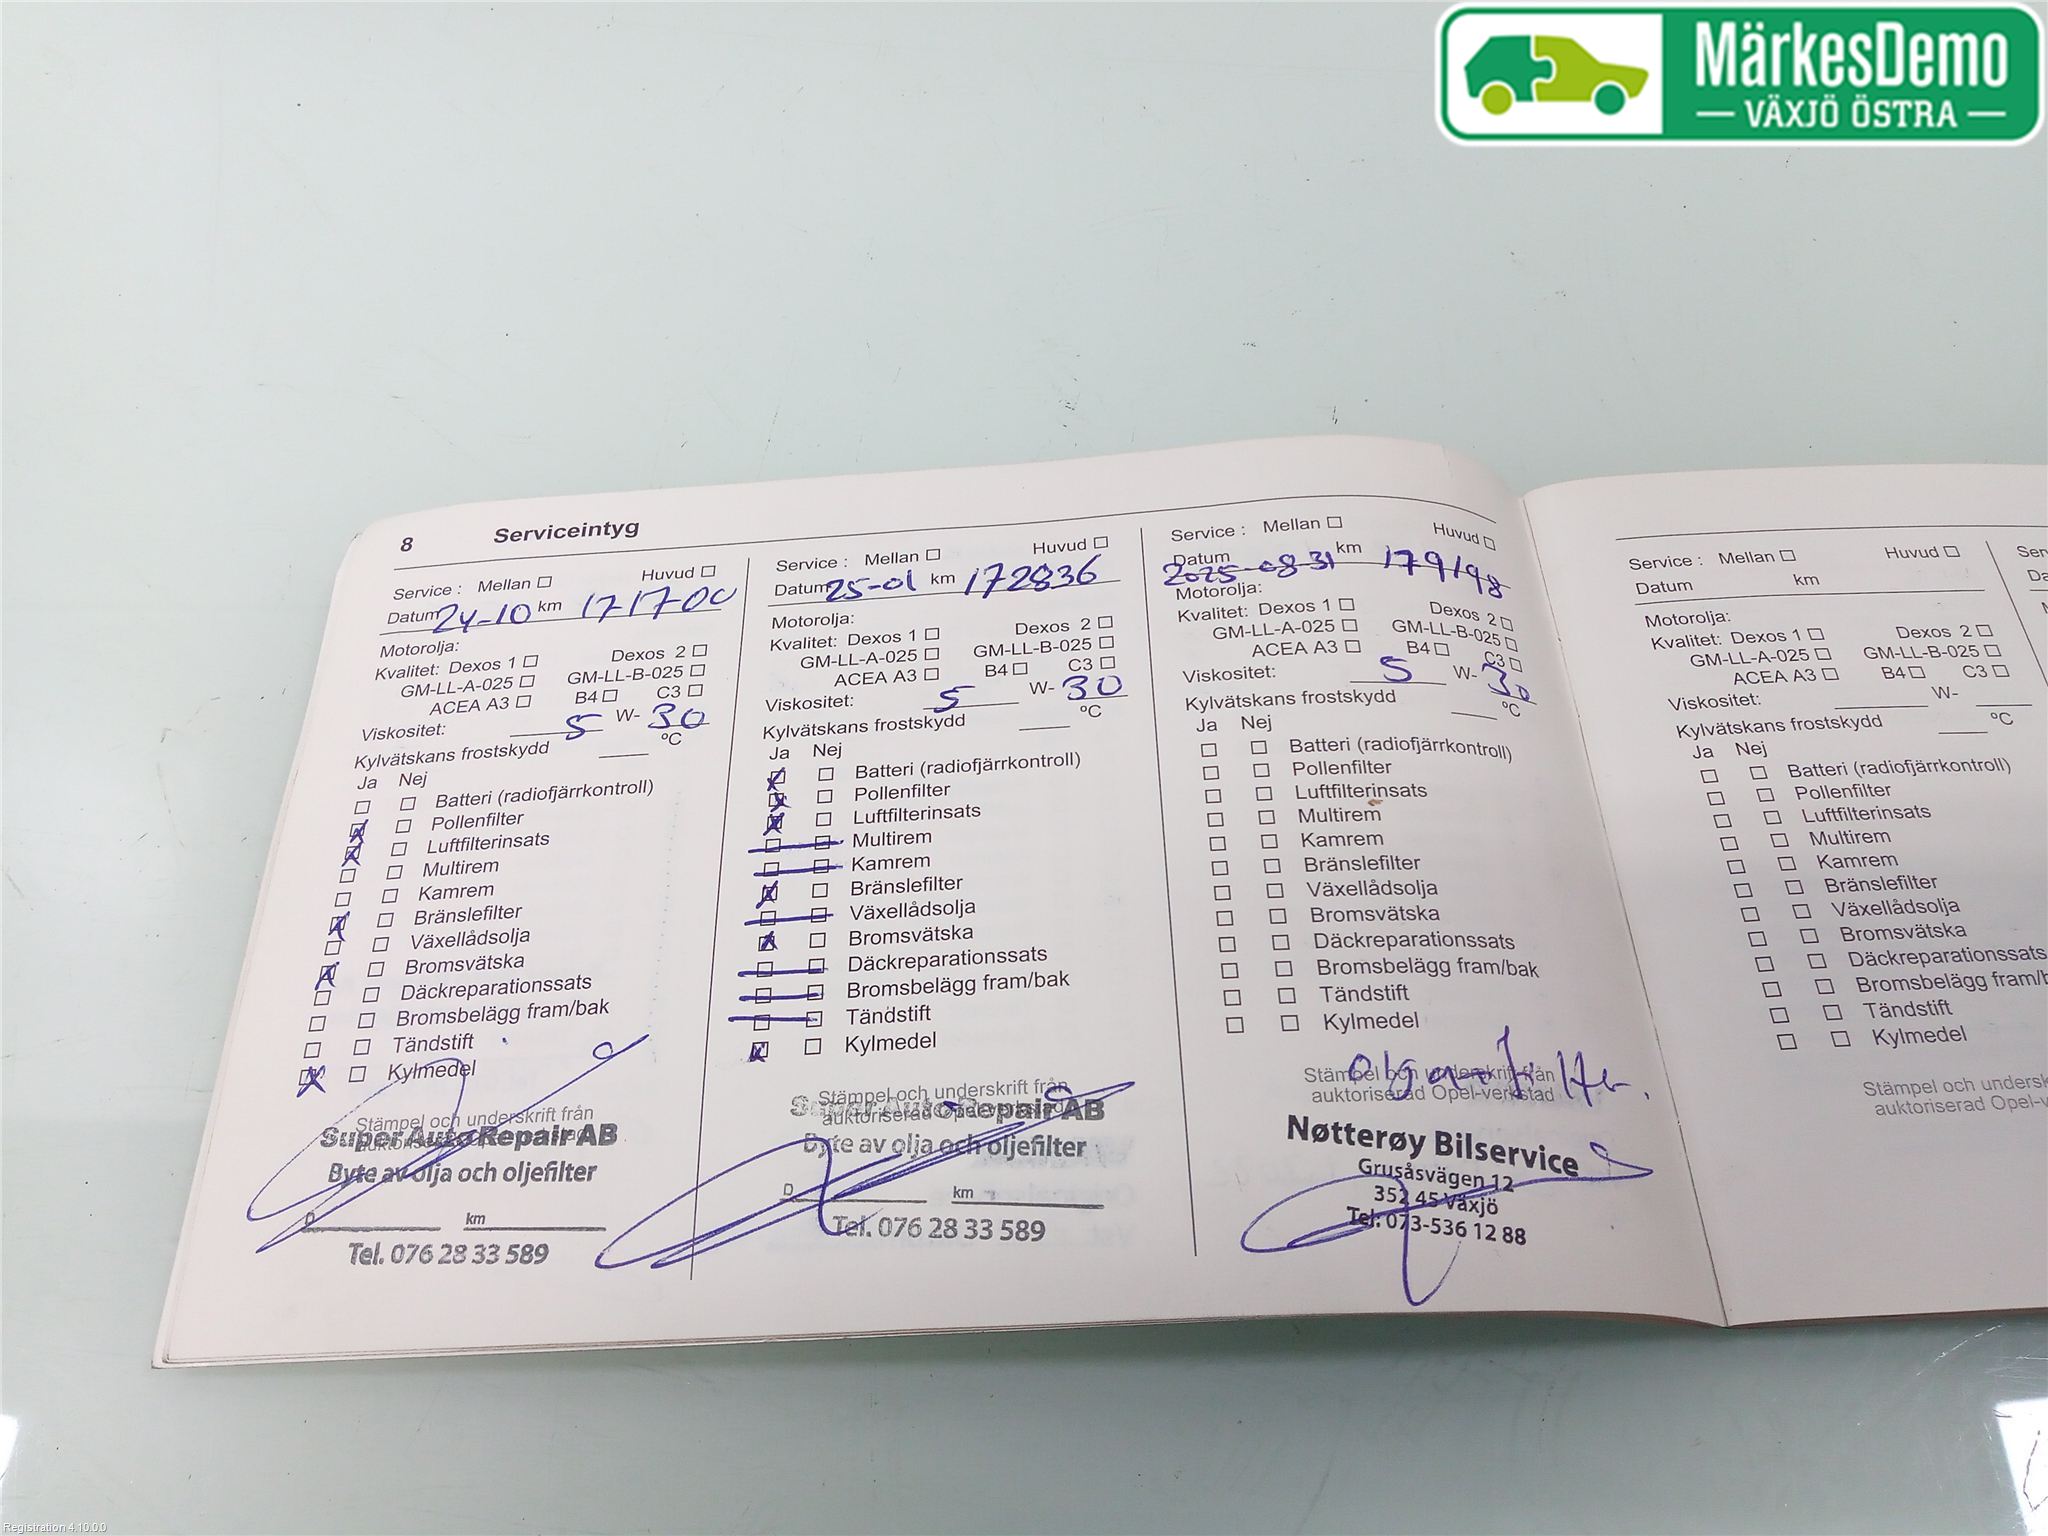 MärkesDemo
VÄXJÖ ÖSTRA
8 Serviceintyg
Service : Mellan Huvud
Datum 24-10 km 171700
Motorolja:
Kvalitet: Dexos 1 Dexos 2
GM-LL-A-025 GM-LL-B-025
ACEA A3 B4 C3
Viskositet: 5 W- 30
Kylvätskans frostskydd °C
Ja Nej
Batteri (radiofjärrkontroll)
Pollenfilter
Luftfilterinsats
Multirem
Kamrem
Bränslefilter
Växellådsolja
Bromsvätska
Däckreparationssats
Bromsbelägg fram/bak
Tändstift
Kylmedel
Stämpel och underskrift från
Super Auto Repair AB
Byte av olja och oljefilter
D km
Tel. 076 28 33 589
Service : Mellan Huvud
Datum 25-01 km 172836
Motorolja:
Kvalitet: Dexos 1 Dexos 2
GM-LL-A-025 GM-LL-B-025
ACEA A3 B4 C3
Viskositet: 5 W- 30
Kylvätskans frostskydd °C
Ja Nej
Batteri (radiofjärrkontroll)
Pollenfilter
Luftfilterinsats
Multirem
Kamrem
Bränslefilter
Växellådsolja
Bromsvätska
Däckreparationssats
Bromsbelägg fram/bak
Tändstift
Kylmedel
Stämpel och underskrift från
auktoriserad Opel-verkstad
Super Auto Repair AB
Byte av olja och oljefilter
D km
Tel. 076 28 33 589
Service : Mellan Huvud
Datum 2025-08-31 km 179198
Motorolja:
Kvalitet: Dexos 1 Dexos 2
GM-LL-A-025 GM-LL-B-025
ACEA A3 B4 C3
Viskositet: 5 W- 30
Kylvätskans frostskydd °C
Ja Nej
Batteri (radiofjärrkontroll)
Pollenfilter
Luftfilterinsats
Multirem
Kamrem
Bränslefilter
Växellådsolja
Bromsvätska
Däckreparationssats
Bromsbelägg fram/bak
Tändstift
Kylmedel
Stämpel och underskrift från
auktoriserad Opel-verkstad
Nøtterøy Bilservice
Grusåsvägen 12
352 45 Växjö
Tel: 073-536 12 88
Service : Mellan Huvud
Datum km
Motorolja:
Kvalitet: Dexos 1 Dexos 2
GM-LL-A-025 GM-LL-B-025
ACEA A3 B4 C3
Viskositet: W-
Kylvätskans frostskydd °C
Ja Nej
Batteri (radiofjärrkontroll)
Pollenfilter
Luftfilterinsats
Multirem
Kamrem
Bränslefilter
Växellådsolja
Bromsvätska
Däckreparationssats
Bromsbelägg fram/b
Tändstift
Kylmedel
Stämpel och undersk
auktoriserad Opel-v
Registration 4.10.0.0